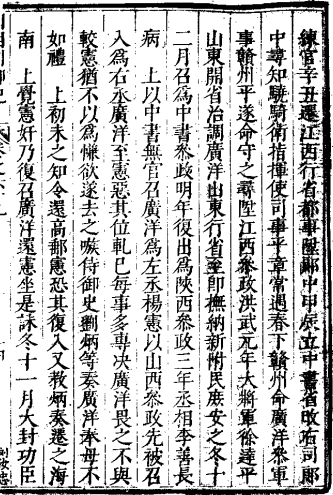 練官辛丑遷江西行省都事陞郎中甲辰立中書省改右司郎
中尋知驍騎衛指揮使司事平章常遇春下贛州命廣洋叅軍
事贛州平遂命守之尋陞江西叅政洪武元年大將軍徐達平
山東開省治調廣洋山東行省至即撫納新附民庶安之冬十
二月召爲中書叅政明年復出爲陝西叅政三年丞相李善長
病 上以中書無官召廣洋爲左丞楊憲以山西叅政先被召
入爲右丞廣洋至憲惡其位軋已每事多專决廣洋畏之不與
較憲猶不以爲慊欲遂去之嗾侍御史劉炳等奏廣洋奉母不
如禮 上初未之知令還高郵憲恐其復入又敎炳奏遷之海
南 上覺憲奸乃復召廣洋還憲坐是誅冬十一月大封功臣